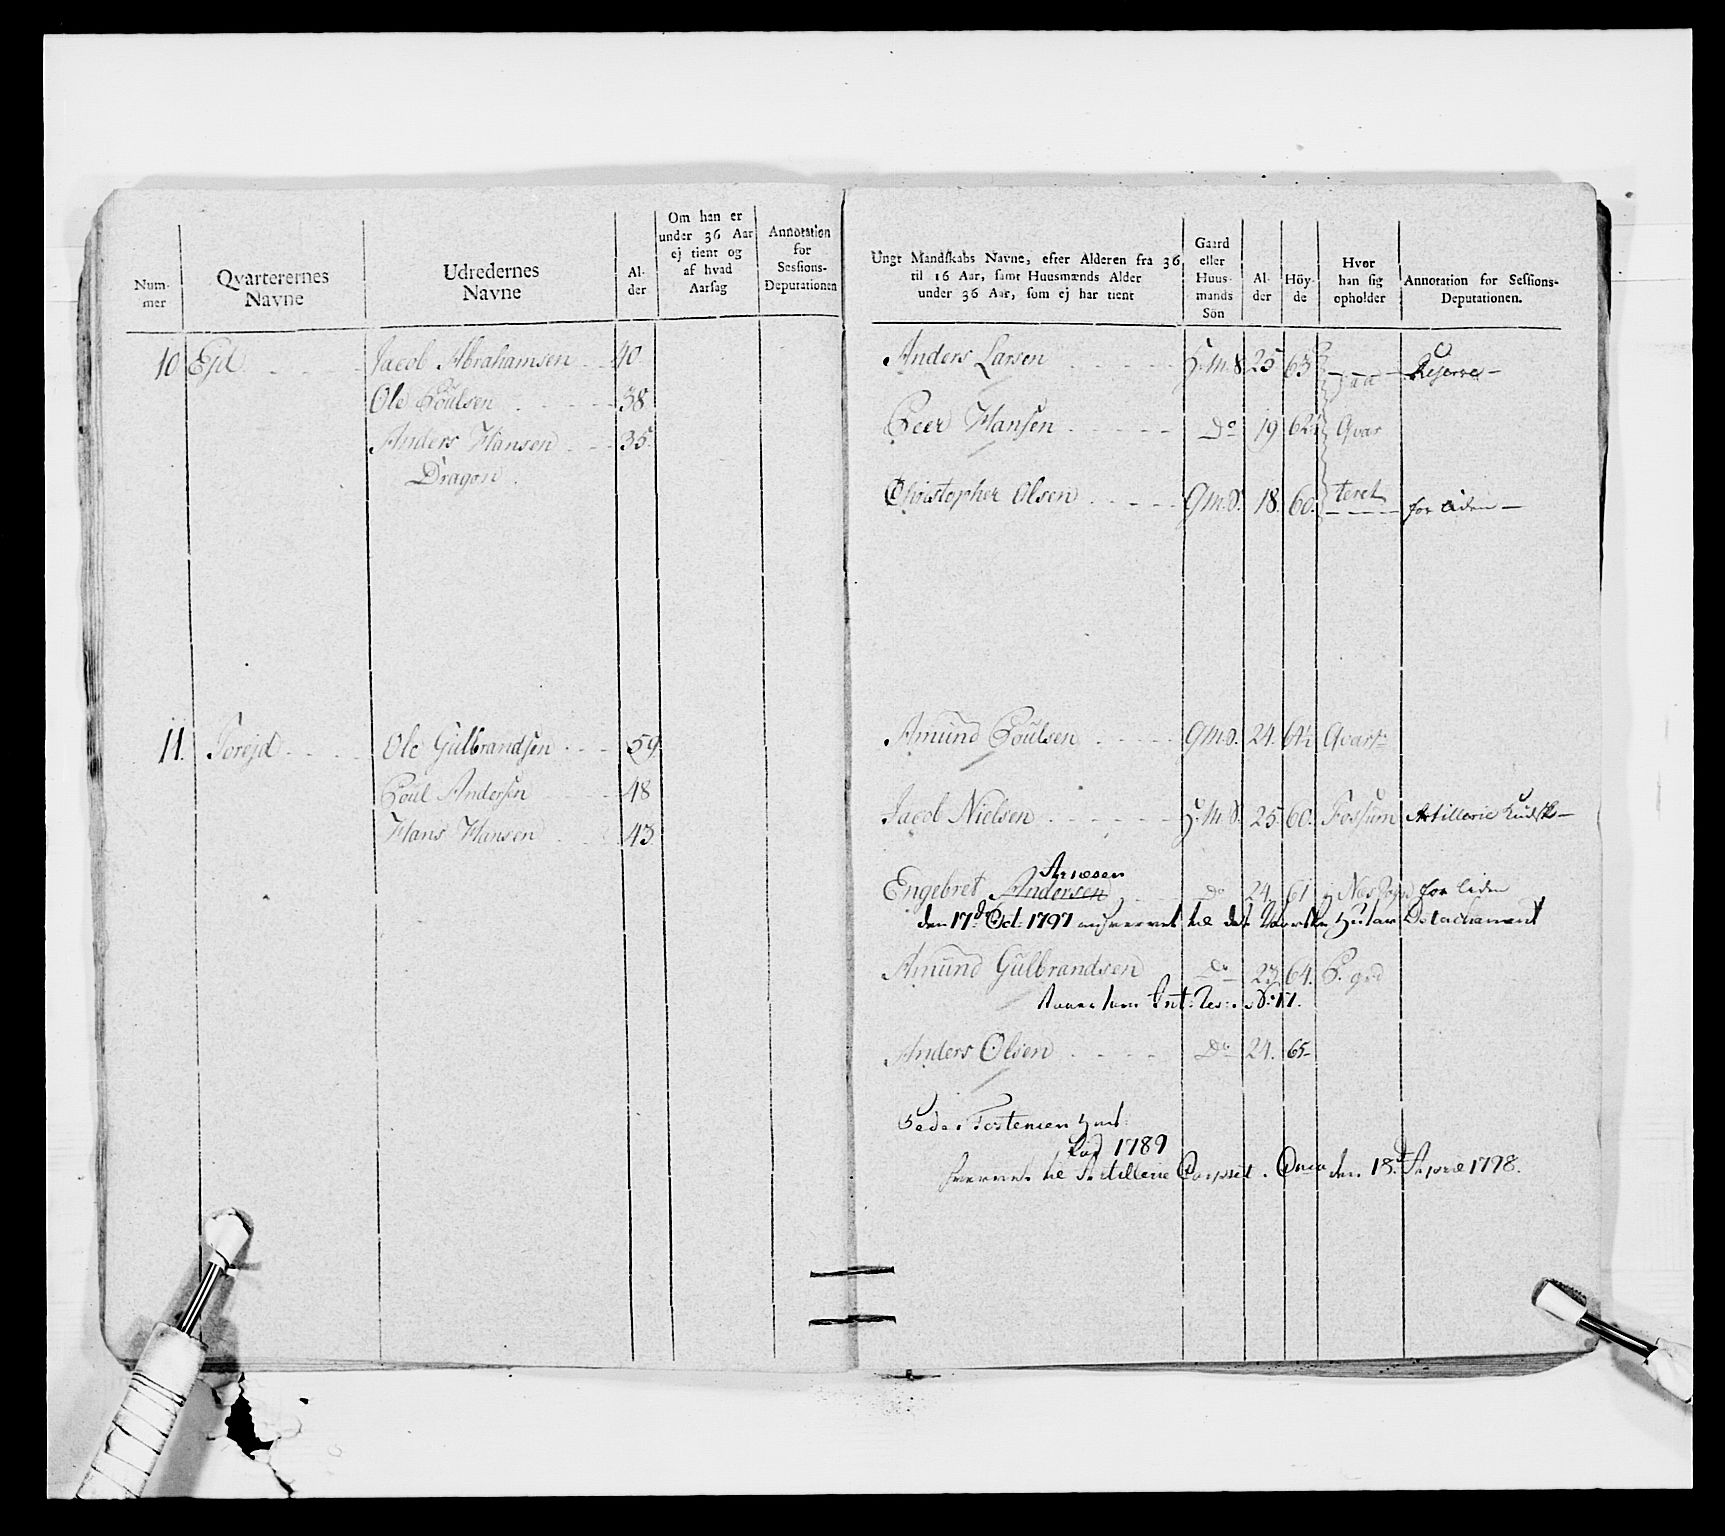 Num-
mer
Qvarterernes
Navne
Udredernes
Navne
Al-
der
Om han er
under 36 Aar
ej tient og
af hvad
Aarsag
Annotation
for
Sessions-
Deputationen
10. Ejd
Jacob Abrahamsen 40
Ole Poulsen 38
Anders Hansen 35
Dragon
11. Torejd
Ole Gulbrandsen 59
Poul Andersen 48
Hans Hansen 43
Ungt Mandskabs Navne, efter Alderen fra 36
til 16 Aar, samt Huusmænds Alder
under 36 Aar, som ej har tient
Gaard
eller
Huus-
mands
Sön
Al-
der
Höy-
de
Hvor
han sig
opholder
Annotation for Sessions-
Deputationen.
Anders Larsen H.M.S. 25 Paa Reserve
Peer Hansen Do 19 Qvar
Christopher Olsen G.M.S. 18. 60. teret for liden
Amund Poulsen G.M.S. 24. Qvart
Jacob Nielsen H.M.S. 25 60. Fossum Artillerie Kudsk
Arnesen
Engebret Andersen Do 24 61 for liden
den 17d Oct: 1797 til det Norske Husar Detachement
Amund Gulbrandsen Do 23 64.
No 11.
Anders Olsen Do 24. 65
Peder
1789
til Artillerie Corpset den 18d April 1798.